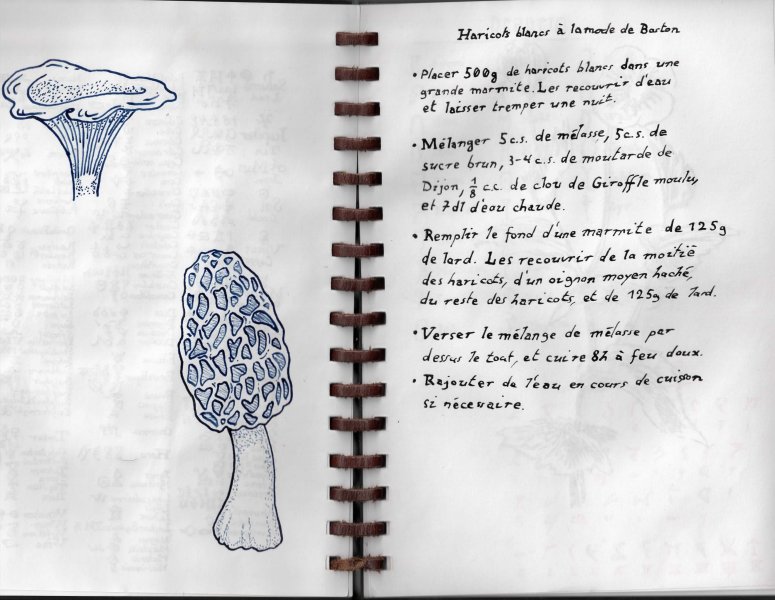 Haricots blancs à la mode de Boston
• Placer 500g de haricots blancs dans une
grande marmite. Les recouvrir d'eau
et laisser tremper une nuit.
• Mélanger 5 c.s. de mélasse, 5 c.s. de
sucre brun, 3-4 c.s. de moutarde de
Dijon, 1/8 c.c. de clou de Giroffle moulu,
et 7dl d'eau chaude.
• Remplir le fond d'une marmite de 125g
de lard. Les recouvrir de la moitié
des haricots, d'un oignon moyen haché,
du reste des haricots, et de 125g de lard.
• Verser le mélange de mélasse par
dessus le tout, et cuire 8h à feu doux.
• Rajouter de l'eau en cours de cuisson
si nécessaire.